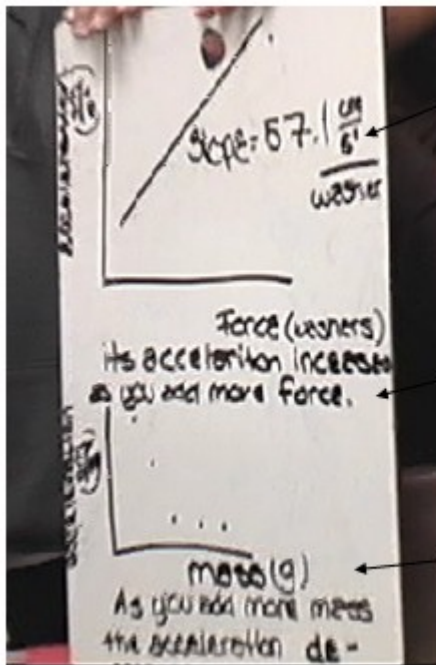 acceleration
slope = 57.1 cm/s²
washer
Force (washers)
its acceleration increases
as you add more force.
acceleration
mass (g)
As you add more mass
the acceleration de-